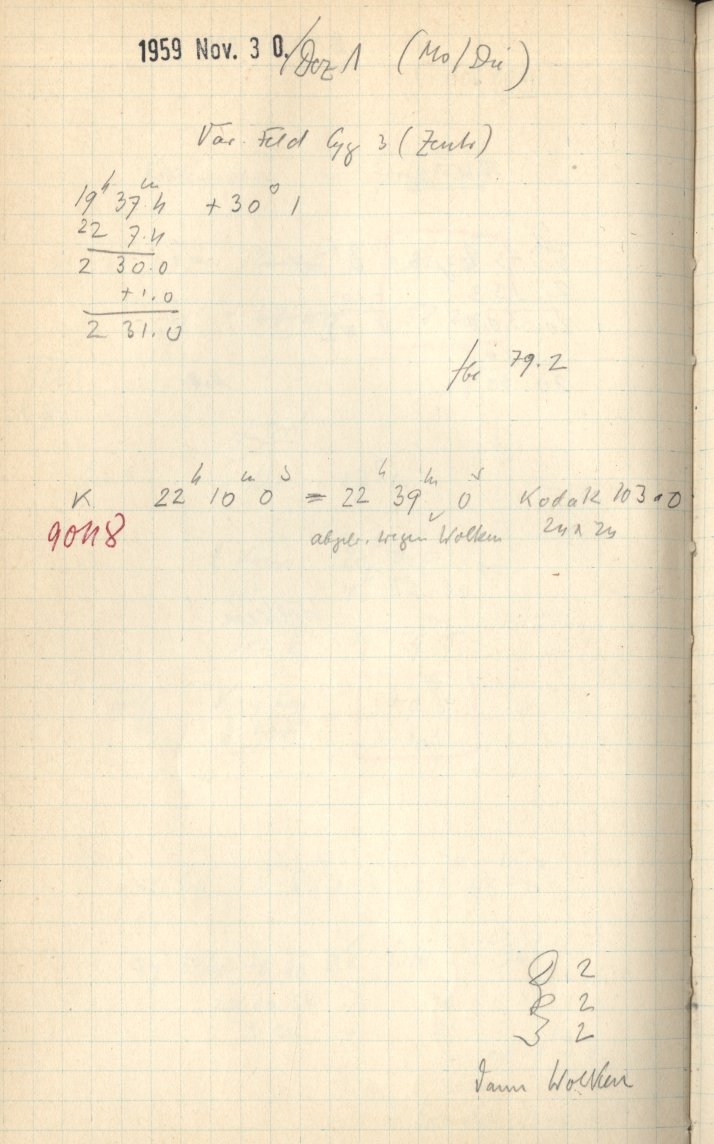 1959 Nov. 30./Dez 1 (Mo/Di)
Var. Feld Cyg 3 (Zentr)
19ʰ 37ᵐ4 +30° 1
22 7.4
2 30.0
+1.0
2 31.0
79.2
K 22ʰ 10ᵐ 0ˢ – 22ʰ 39ᵐ 0ˢ Kodak 103a0
9048 abgebr. wegen Wolken 24 x 24
2
2
2
Dann Wolken